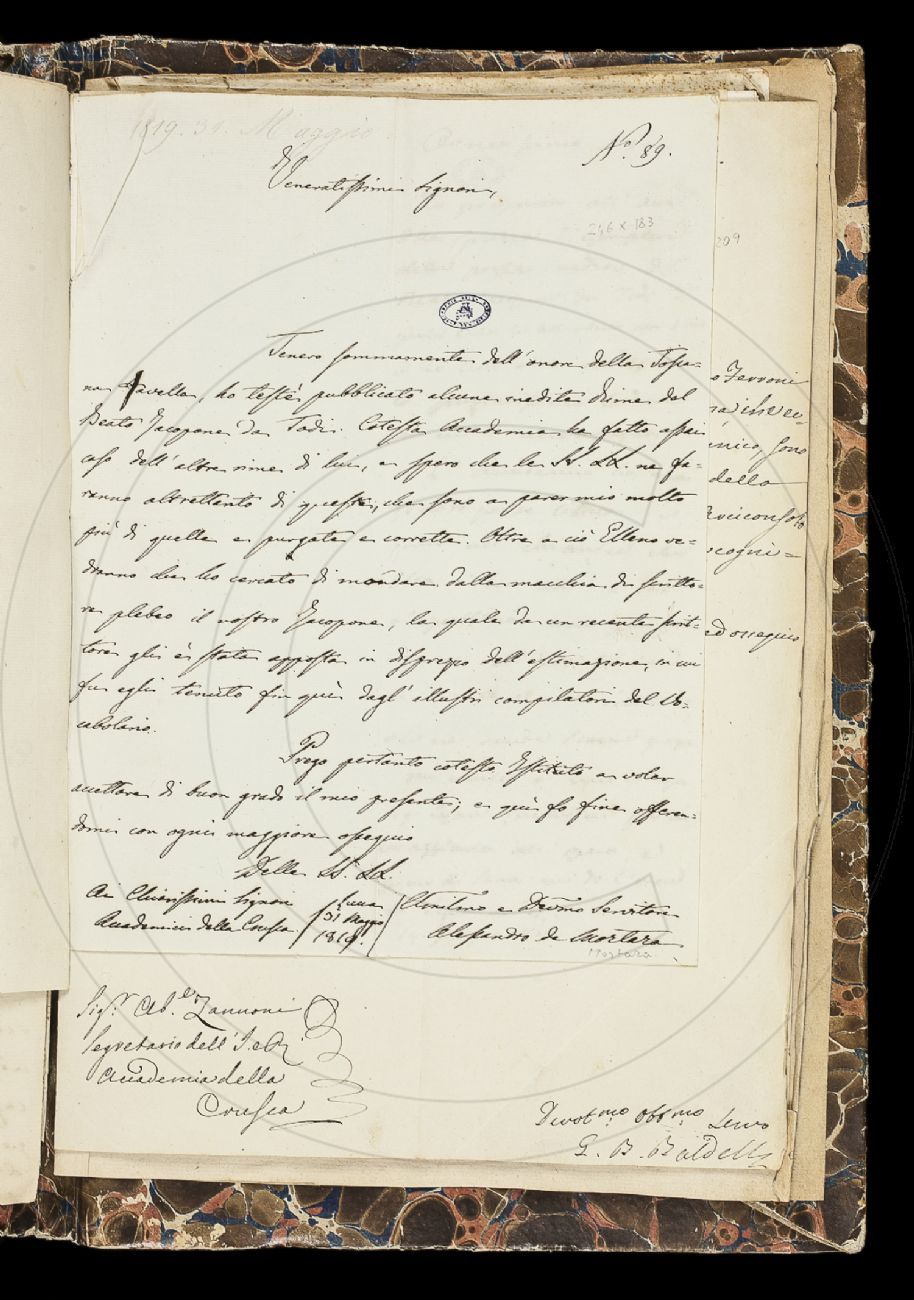 1819. 31. Maggio
N.º 89.
Veneratissimi Signori,
246 x 183
209
Tenero sommamente dell'onore della Tosca-
na favella, ho testè pubblicato alcune inedite Rime del
Beato Jacopone da Todi. Cotesta Accademia ha fatto assai
caso dell'altre rime di lui, e spero che le SS. LL. ne fa-
ranno altrettanto di queste, che sono a parer mio molto
più di quelle e purgate e corrette. Oltre a ciò Elleno ve-
dranno che ho cercato di mondare dalla macchia di scritto-
re plebeo il nostro Jacopone, la quale da un recente scrit-
tore gli è stata apposta in disprezzo dell'estimazione in cui
fu egli tenuto fin quì dagl'illustri compilatori del Vo-
cabolario.
Prego pertanto cotesto Istituto a voler
accettare di buon grado il mio presente; e quì fo fine offeren-
domi con ogni maggiore ossequio
Delle SS. LL.
Ai Chiarissimi Signori
Accademici della Crusca
Lucca
31 Maggio
1819.
Umilmo e Devmo Servitore
Alessandro de Mortara
Mortara
o Ferroni
nico, sono
della
Arciconsolo
cogni=
ed ossequio
Sig.r Ab.e Zannoni
Segretario dell'I. e R.
Accademia della
Crusca
Devot.mo Obb.mo Servo
G. B. Baldelli